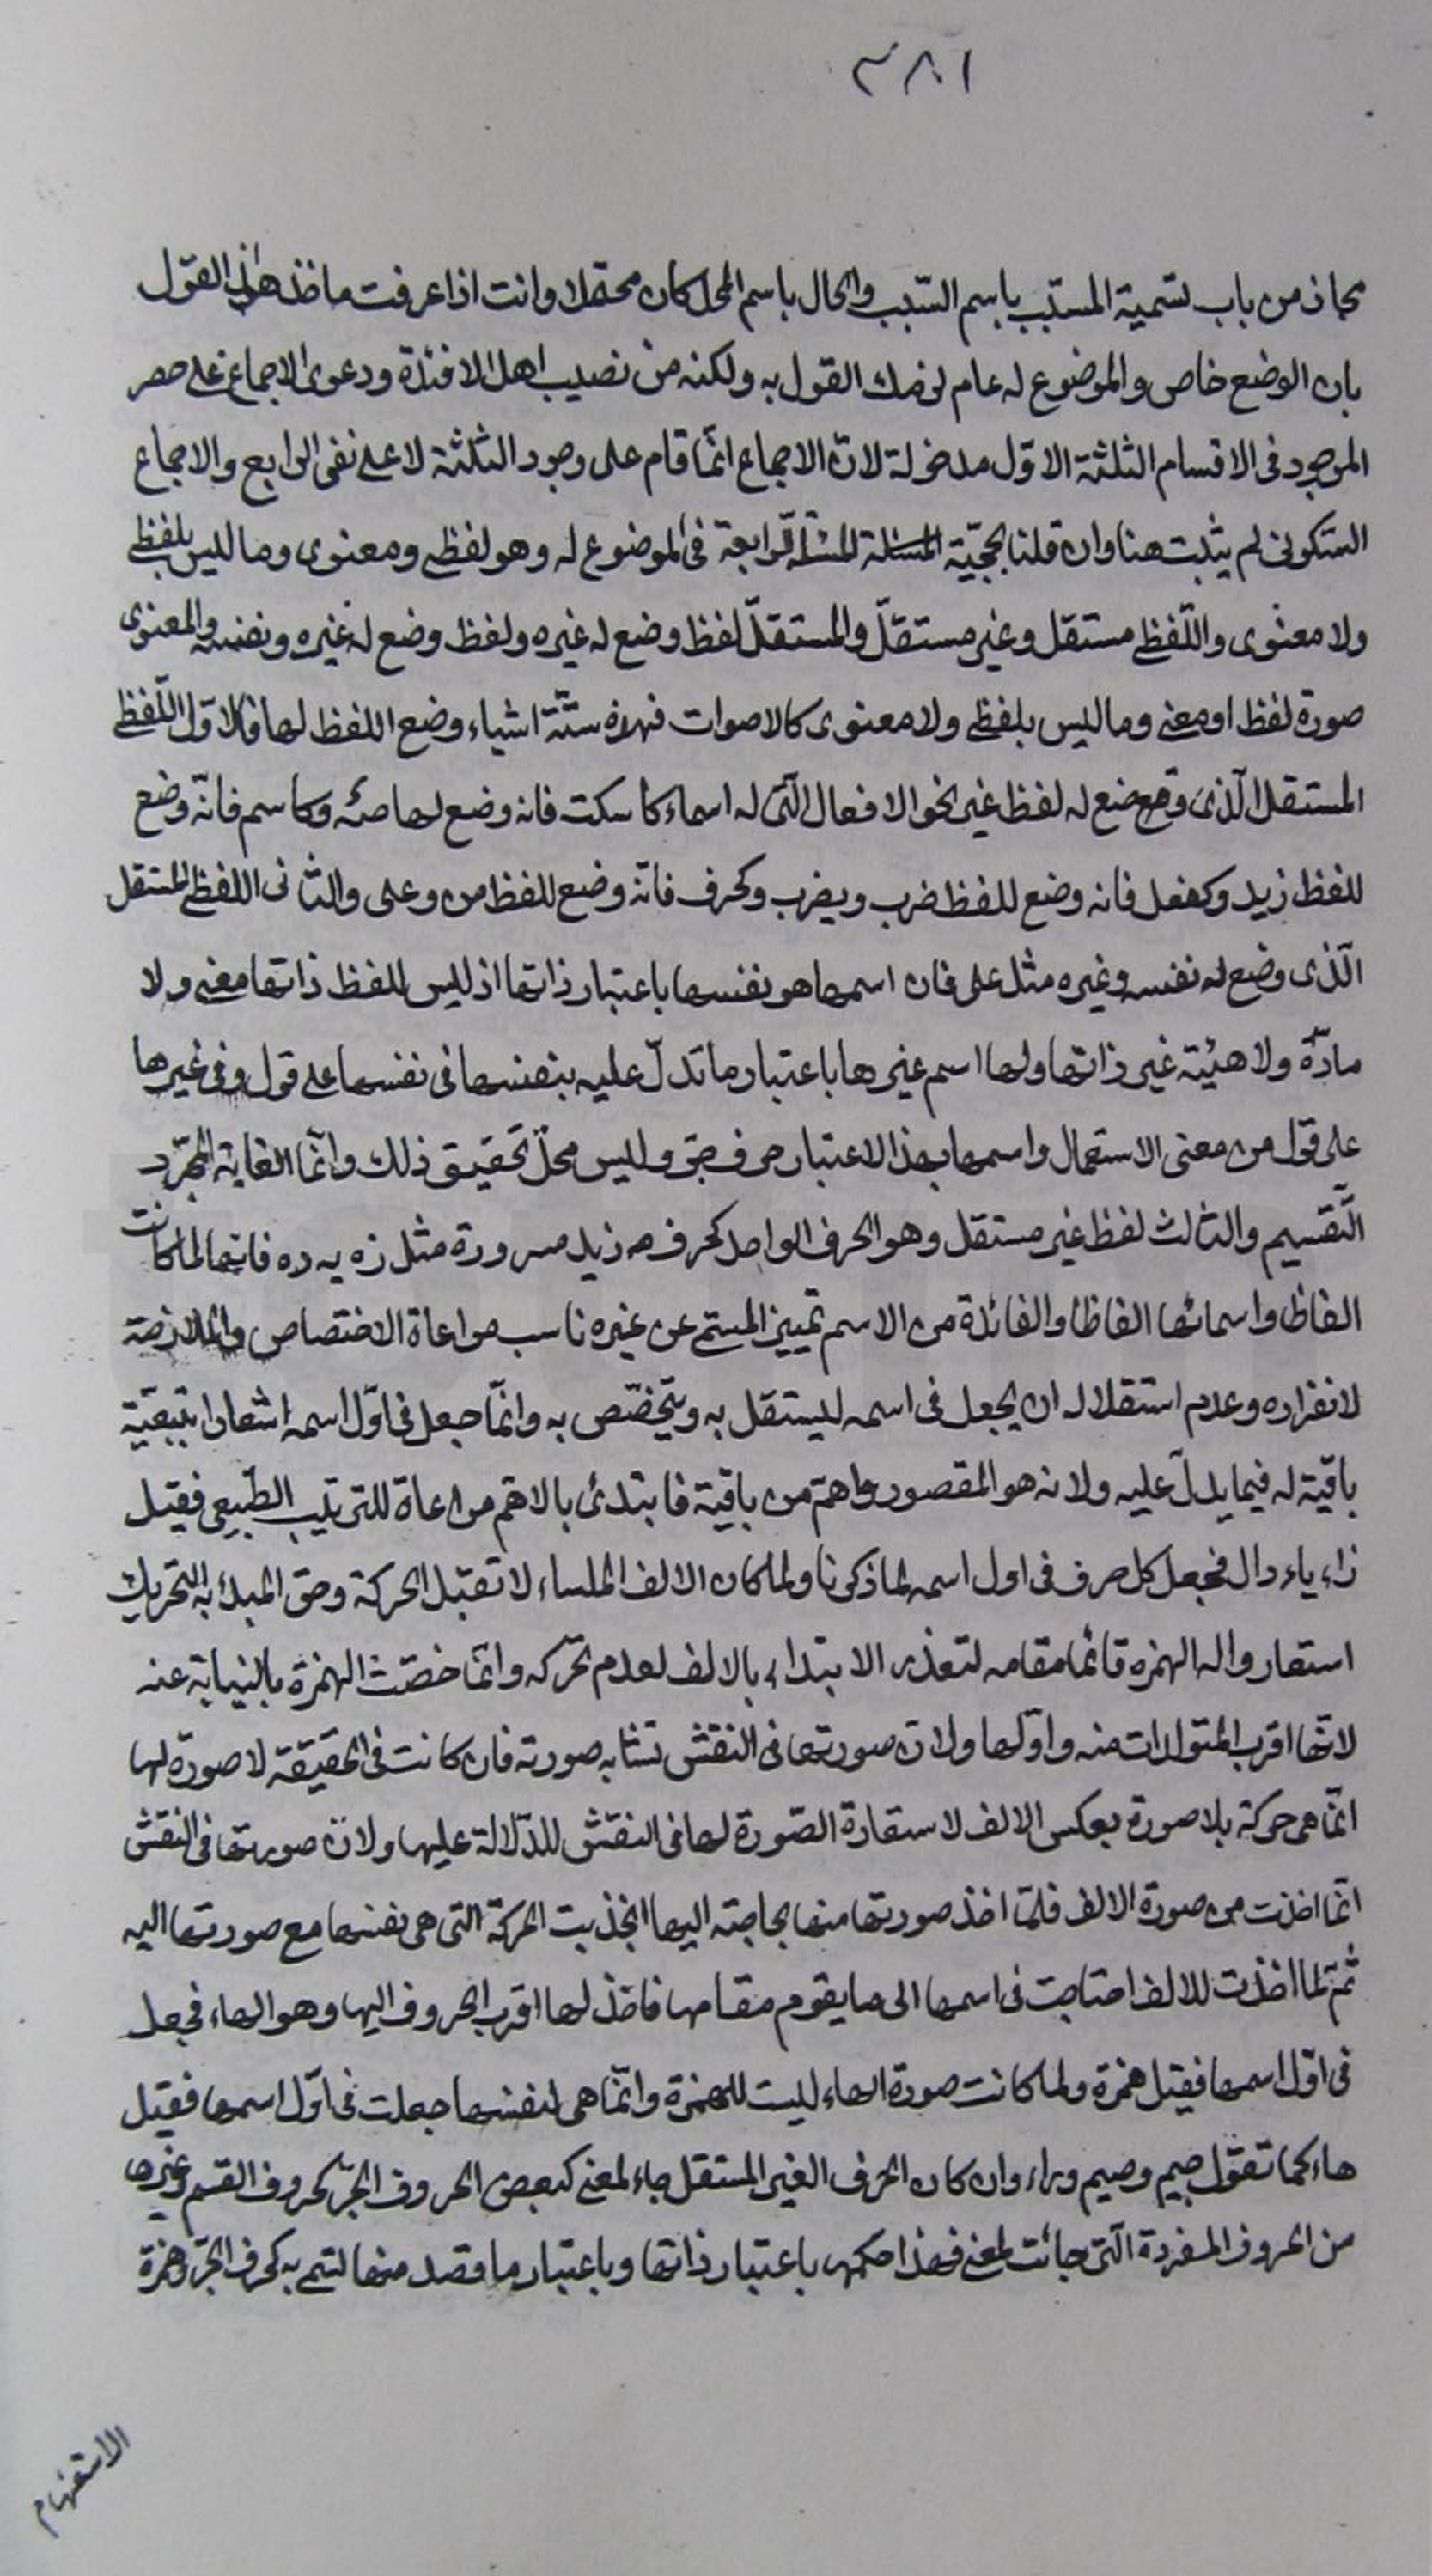 ٣٨١
مجاز من باب تسمية المسبّب باسم السّبب والحال باسم المحل كان محتملا وانت اذا عرفت ماخذ هذا القول
بان الوضع خاص والموضوع له عام لزمك القول به ولكنه من نصيب اهل الافئدة ودعوى الاجماع على حصر
الموجود فى الاقسام الثلثة الاول مدخولة لانّ الاجماع انّما قام على وجود الثلثة لا على نفى الرابع والاجماع
السّكوتى لم يثبت هنا وان قلنا بحجّيّة المسئلة الرّابعة فى الموضوع له وهو لفظى ومعنوى وما ليس بلفظى
ولا معنوى واللّفظى مستقل وغير مستقلّ والمستقلّ لفظ وضع له غيره ولفظ وضع له غيره ونفسه والمعنوى
صورة لفظ او معنى وما ليس بلفظى ولا معنوى كالاصوات فهذه ستّة اشياء وضع اللفظ لها فالاوّل اللّفظى
المستقل الّذى وضع له لفظ غير نحو الافعال الّتى له اسماء كاسكت فانه وضع لها صه وكاسم فانّه وضع
للفظ زيد وكفعل فانه وضع للفظ ضرب ويضرب وكحرف فانّه وضع للفظ من وعلى والثانى اللفظى المستقل
الّذى وضع له نفسه وغيره مثل على فان اسمها هو نفسها باعتبار ذاتها اذ ليس للفظ ذاتها معنى ولا
مادّة ولا هيئة غير ذاتها ولها اسم غيرها باعتبار ما تدلّ عليه بنفسها فى نفسها على قول وفى غيرها
على قول من معنى الاستعمال واسمها بهذا الاعتبار حرف جرّ وليس محلّ تحقيق ذلك وانّما الغاية المجرّد
التّقسيم والثالث لفظ غير مستقل وهو الحرف الواحد كحرف من زيد مسرورة مثل زه يه ده فانها لما كانت
الفاظا واسمائها الفاظا والفائدة من الاسم تمييز المسمّى عن غيره ناسب مراعاة الاختصاص والملازمة
لانفراده وعدم استقلاله ان يجعل فى اسمه ليستقل به ويتخصّص به وانّما جعل فى اوّل اسمه اشعارا بتبعيّة
باقيّة له فيما يدلّ عليه ولانه هو المقصود واهمّ من باقيه فابتدئ بالاهمّ مراعاة للترتيب الطّبيعى فقيل
زاء ياء دال فجعل كل حرف فى اول اسمه لما ذكرنا ولما كان الالف الملساء لا تقبل الحركة وحق المبدء به التحريك
استعاروا له الهمزه قائما مقامه لتعذر الابتداء بالالف لعدم تحرّكه وانّما خصّت الهمزة بالنيابة عنه
لانّها اقرب المتولدات منه واوّلها ولانّ صورتها فى النقش تشابه صورته فان كانت فى الحقيقة لا صورة لها
انّما هى حركة بلا صورة بعكس الالف لاستعارة الصّورة لها فى النقش للدّلالة عليها ولانّ صورتها فى النقش
انّما اخذت من صورة الالف فلمّا اخذ صورتها منها بحاجته اليها انجذبت الحركة التى هى نفسها مع صورتها اليه
ثمّ لما اخذت للالف احتاجت فى اسمها الى ما يقوم مقامها فاخذ لها اقرب الحروف اليها وهو الهاء فجعل
فى اوّل اسمها فقيل همزة ولما كانت صورة الهاء ليست للهمزة وانّما هى لنفسها جعلت فى اوّل اسمها فقيل
هاء كما تقول جيم وميم وراء وان كان الحرف الغير المستقل جاء لمعنى كبعض الحروف الجرّ كحروف القسم وغيرها
من الحروف المفردة الّتى جائت لمعنى فهذا حكمها باعتبار ذاتها وباعتبار ما قصد منها لتسمى به كحرف الجرّ وهمزة
الاستفهام